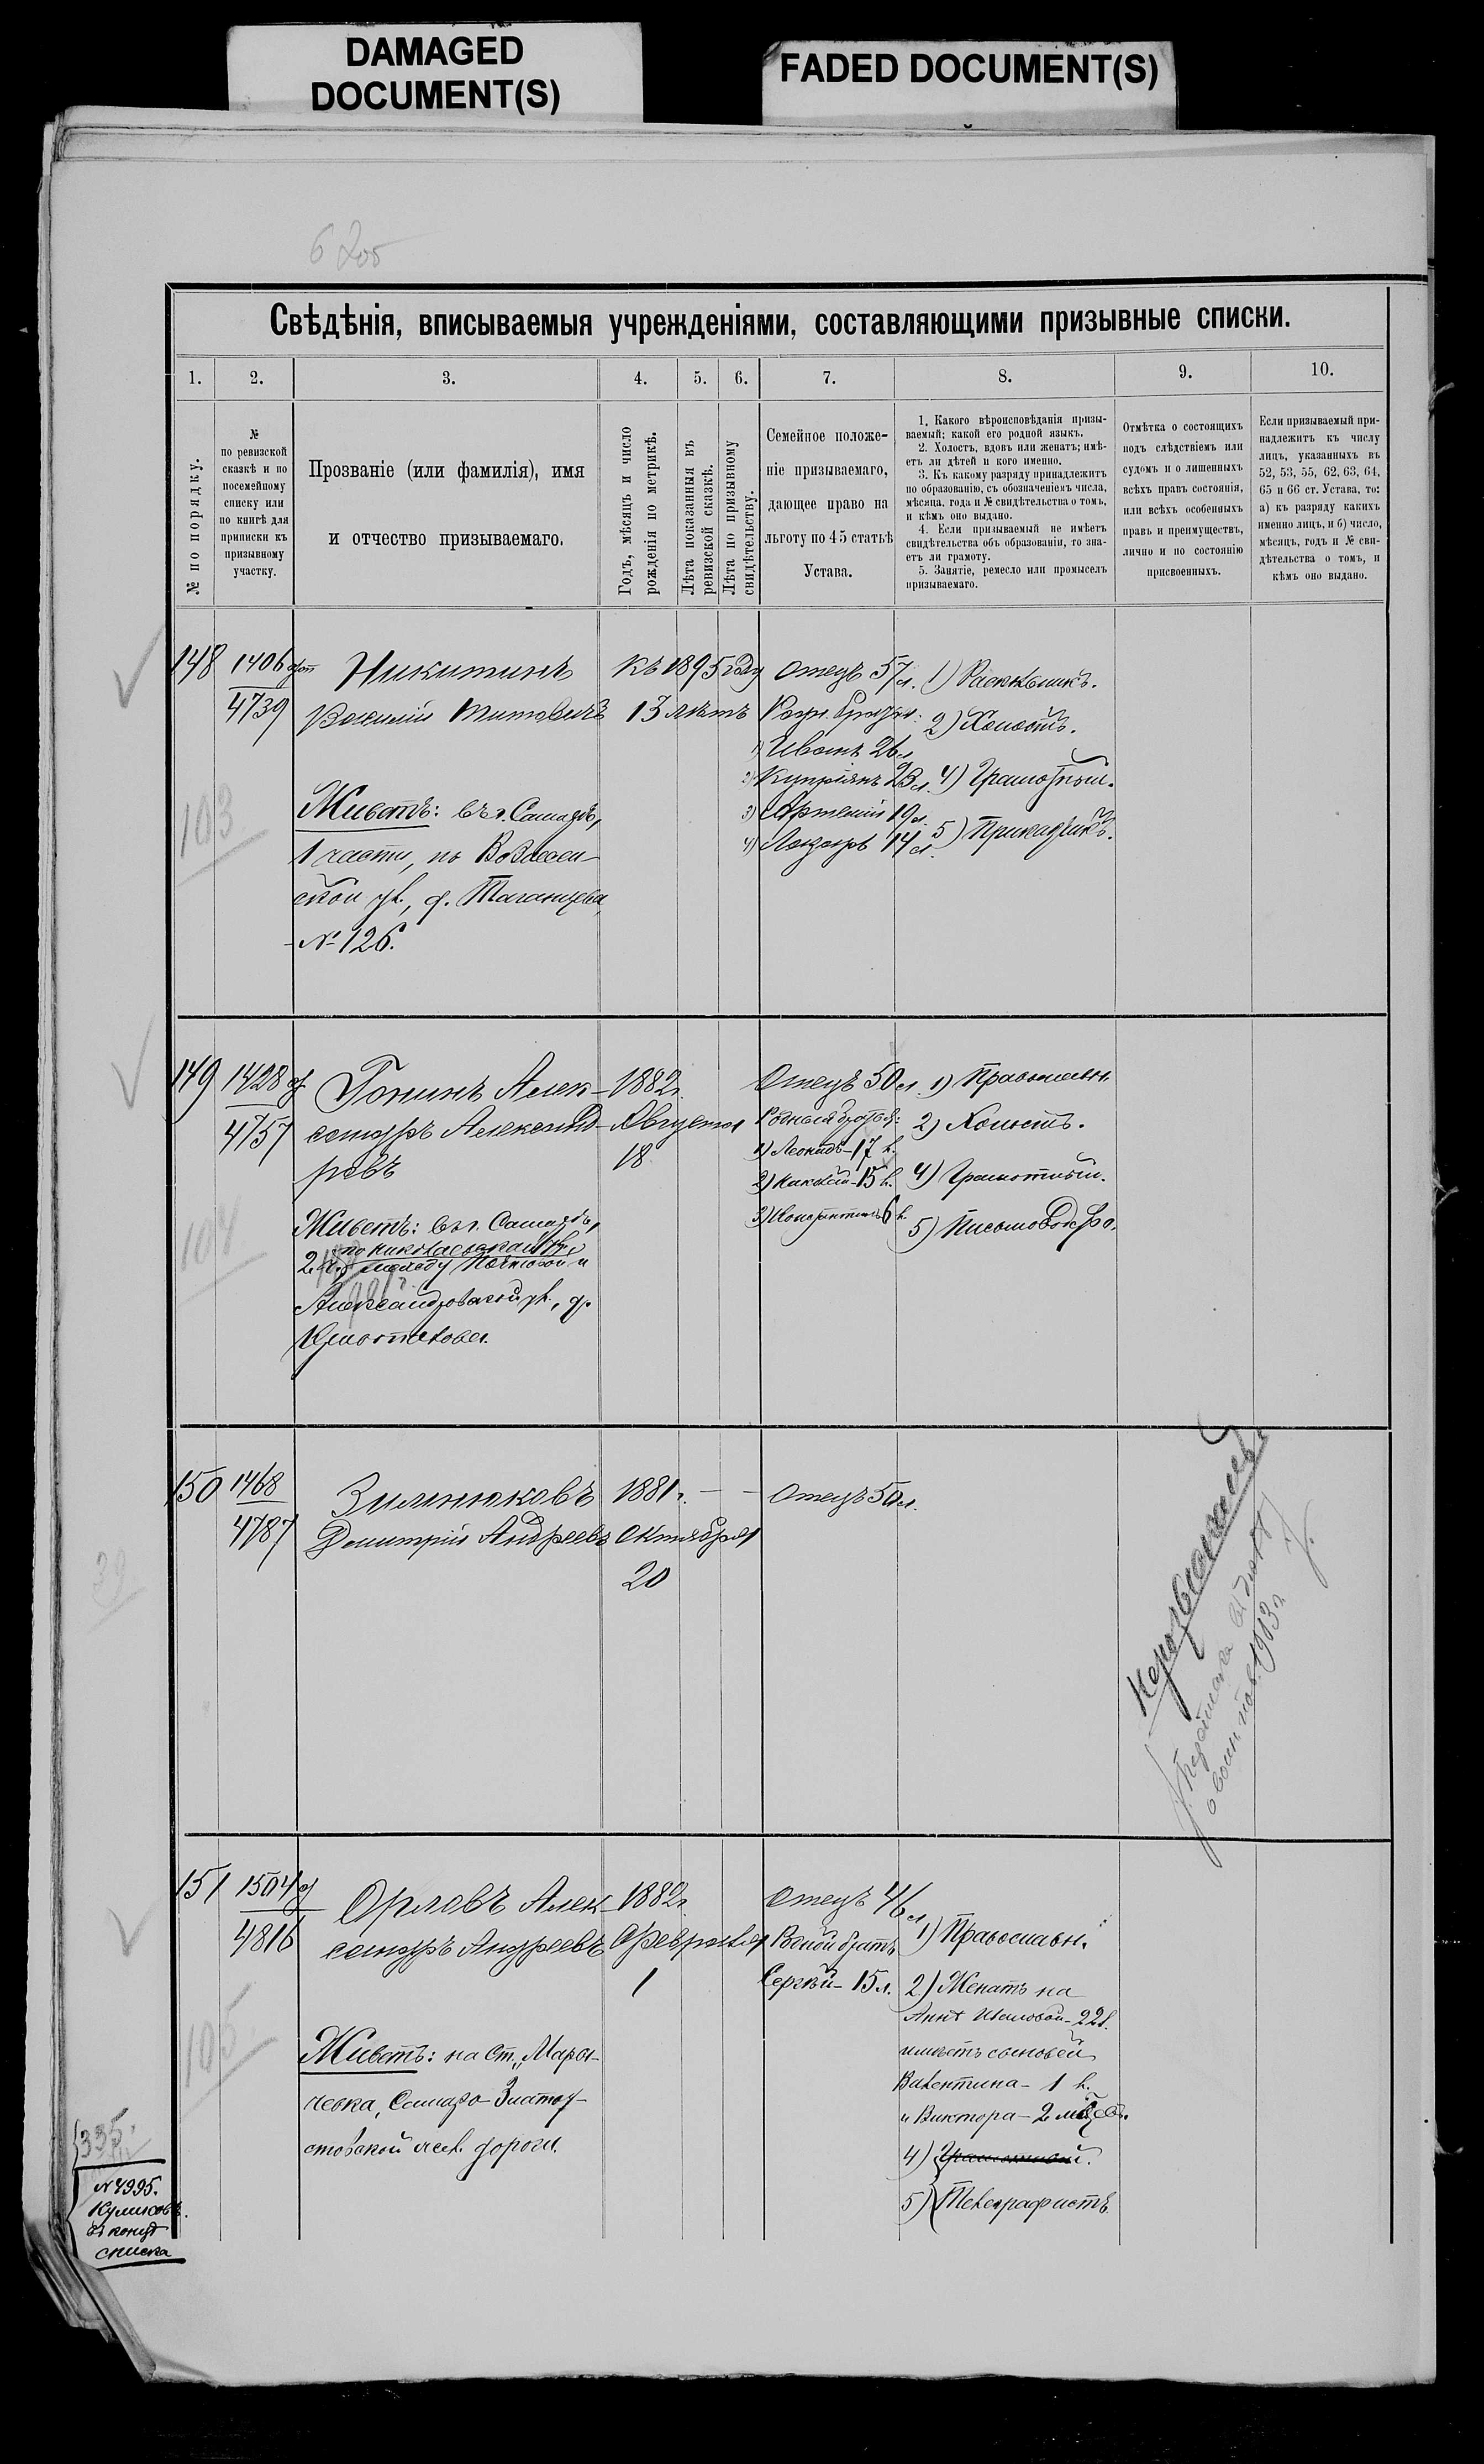 DAMAGED
DOCUMENT(S)
FADED DOCUMENT(S)
Свѣдѣнія, вписываемыя учрежденіями, составляющими призывные списки.
1.
2.
3.
4.
5.
6.
7.
8.
9.
10.
№ по порядку.
№
по ревизской
сказкѣ и по
посемейному
списку или
по книгѣ для
приписки къ
призывному
участку.
Прозваніе (или фамилія), имя
и отчество призываемаго.
Годъ, мѣсяцъ и число
рожденія по метрикѣ.
Лѣта показанныя въ
ревизской сказкѣ.
Лѣта по призывному
свидѣтельству.
Семейное положе-
ніе призываемаго,
дающее право на
льготу по 45 статьѣ
Устава.
1. Какого вѣроисповѣданія призы-
ваемый; какой его родной языкъ.
2. Холостъ, вдовъ или женатъ; имѣ-
етъ ли дѣтей и кого именно.
3. Къ какому разряду принадлежитъ
по образованію, съ обозначеніемъ числа,
мѣсяца, года и № свидѣтельства о томъ,
и кѣмъ оно выдано.
4. Если призываемый не имѣетъ
свидѣтельства объ образованіи, то зна-
етъ ли грамоту.
5. Занятіе, ремесло или промыселъ
призываемаго.
Отмѣтка о состоящихъ
подъ слѣдствіемъ или
судомъ и о лишенныхъ
всѣхъ правъ состоянія,
или всѣхъ особенныхъ
правъ и преимуществъ,
лично и по состоянію
присвоенныхъ.
Если призываемый при-
надлежитъ къ числу
лицъ, указанныхъ въ
52, 53, 55, 62, 63, 64,
65 и 66 ст. Устава, то:
а) къ разряду какихъ
именно лицъ, и б) число,
мѣсяцъ, годъ и № сви-
дѣтельства о томъ, и
кѣмъ оно выдано.
148
1406
4739
Никитинъ
Василій Титовичъ
Живетъ: въ г. Самарѣ,
1 части, по Вознесен-
ской ул., д. Таганцева,
№ 126.
къ 1895 году
13 лѣтъ
Отецъ 57 л.
Родн. братья:
1) Иванъ 26 л.
2) Купріянъ 23 л.
3) Артемій 19 л.
4) Лазарь 14 л.
1) Раскольникъ.
2) Холостъ.
4) Грамотный.
5) Прикащикъ.
103
149
1428
4757
Гонинъ Алек-
сандръ Александ-
ровъ
Живетъ: въ г. Самарѣ,
по Николаевской ул.
2 ч., между Почтовой и
Александровской ул., д.
1882 г.
Августа
18
Отецъ 50 л.
Родные братья:
1) Леонидъ - 17 л.
2) Николай - 15 л.
3) Константинъ 6 л.
1) Православн.
2) Холостъ.
4) Грамотный.
5) Письмоводство.
104
150
1468
4787
Зимнюковъ
Дмитрій Андреевъ
1881 г. — —
Октября
20
Отецъ 50 л.
1903 г.
151
1504
4816
Орловъ Алек-
сандръ Андреевъ
Живетъ: на ст. „Мары-
чевка, Самаро-Златоу-
стовской жел. дороги.
1882 г.
Февраля
1
Отецъ 46 л.
Родной братъ
Сергѣй - 15 л.
1) Православн.
2) Женатъ на
Аннѣ Ивановой - 22 л.
имѣетъ сыновей
Валентина - 1 л.
и Виктора - 2 мѣсяц.
4) Грамотный.
5) Телеграфистъ.
105
335
№ 4995.
Куликовъ.
въ концѣ
списка